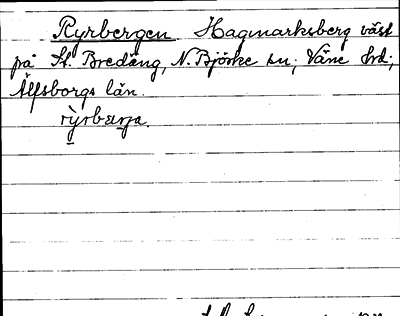 Ryrbergen Hagmarksberg väst
på St. Bredäng, N. Björke sn; Väne hd;
Älfsborgs län.